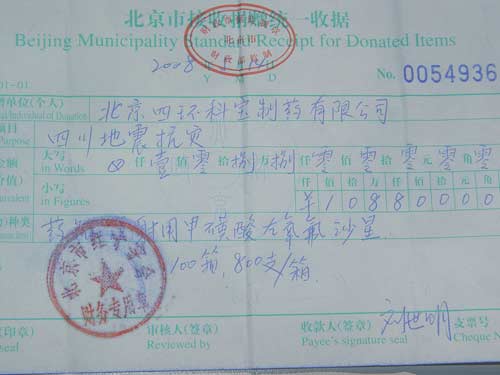 北京市接收捐赠统一收据
Beijing Municipality Standard Receipt for Donated Items
北京市
2008年 月 日
Y M D
No. 0054936
01-01
赠单位(个人) 北京四环科宝制药有限公司
项目 四川地震抗灾
Purpose
金额 大写 ⊗仟壹佰零拾捌万捌仟零佰零拾零元零角零
in Words
仟 佰 拾 万 仟 佰 拾 元 角
小写 ¥10880000
in Figures
种类 射用甲磺酸左氧氟沙星
100箱,800支/箱
财务专用章
审核人(签章)
Reviewed by
收款人(签章) 刘世明
Payee's signature seal
支票号
Cheque N
印章)
seal